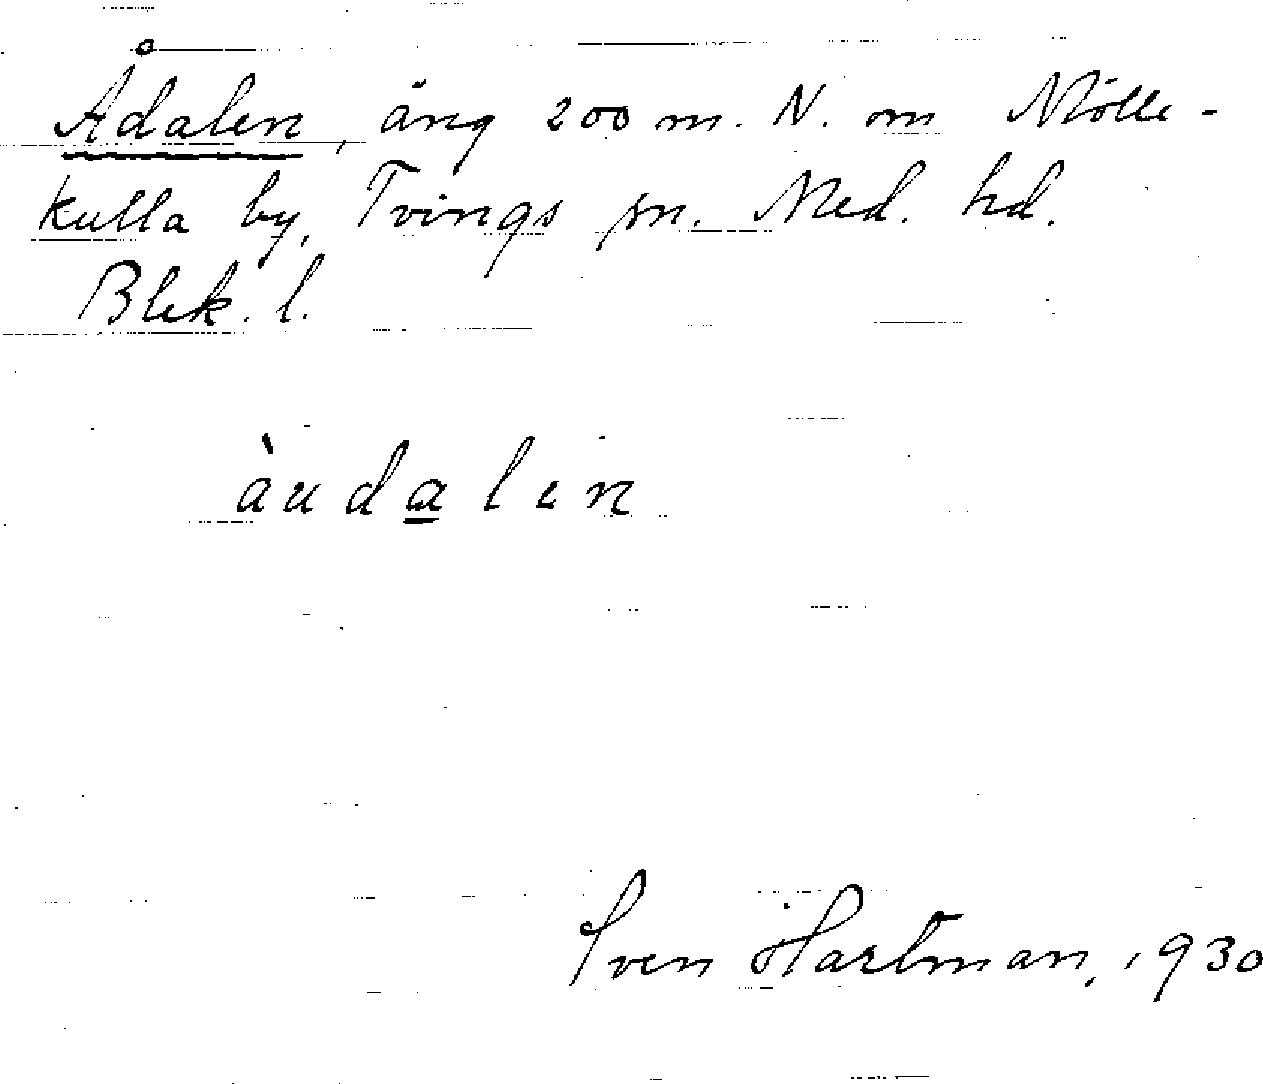 Ådalen, äng 200 m. N. om Mölle-
kulla by, Tvings sn. Med. hd.
Blek. l.
àudalen
Sven Hartman, 1930